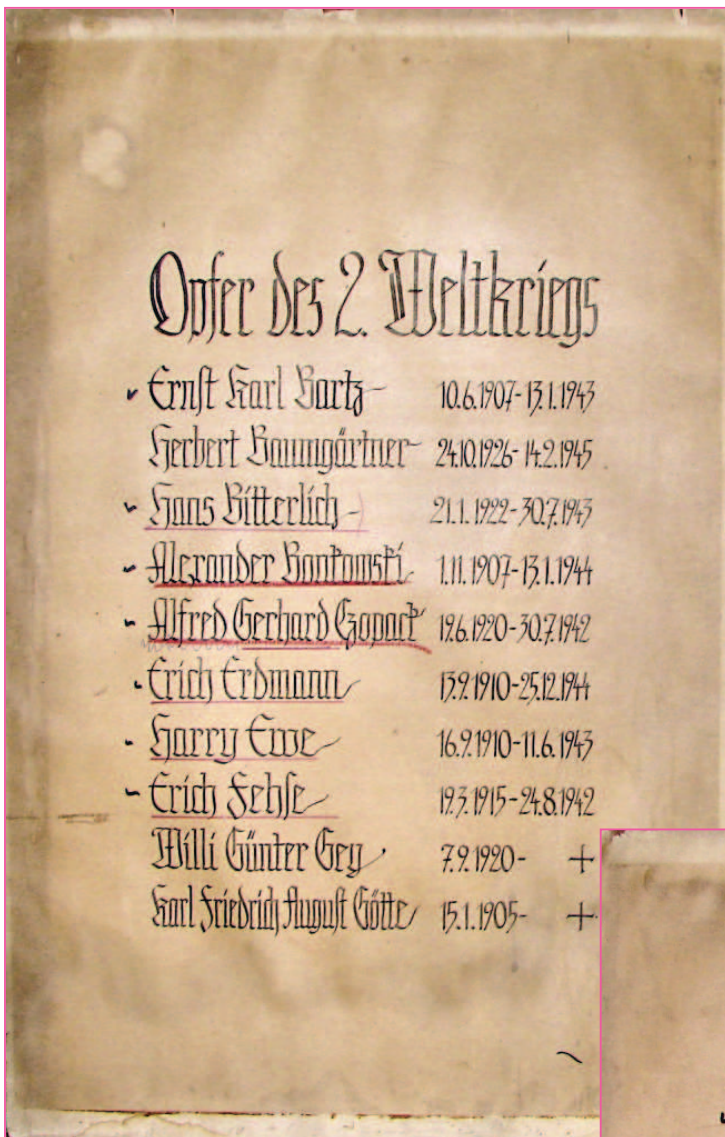 Opfer des 2. Weltkriegs
Ernst Karl Bartz - 10.6.1907-13.1.1943
Herbert Baumgärtner - 24.10.1926-14.2.1945
Hans Bitterlich - 21.1.1922-30.7.1943
Alexander Bonkowski 1.11.1907-13.1.1944
Alfred Gerhard Czopack 19.6.1920-30.7.1942
Erich Erdmann 13.9.1910-25.12.1944
Harry Ewe 16.9.1910-11.6.1943
Erich Fehse 19.3.1915-24.8.1942
Willi Günter Gey 7.9.1920- +
Karl Friedrich August Götte 15.1.1905- +